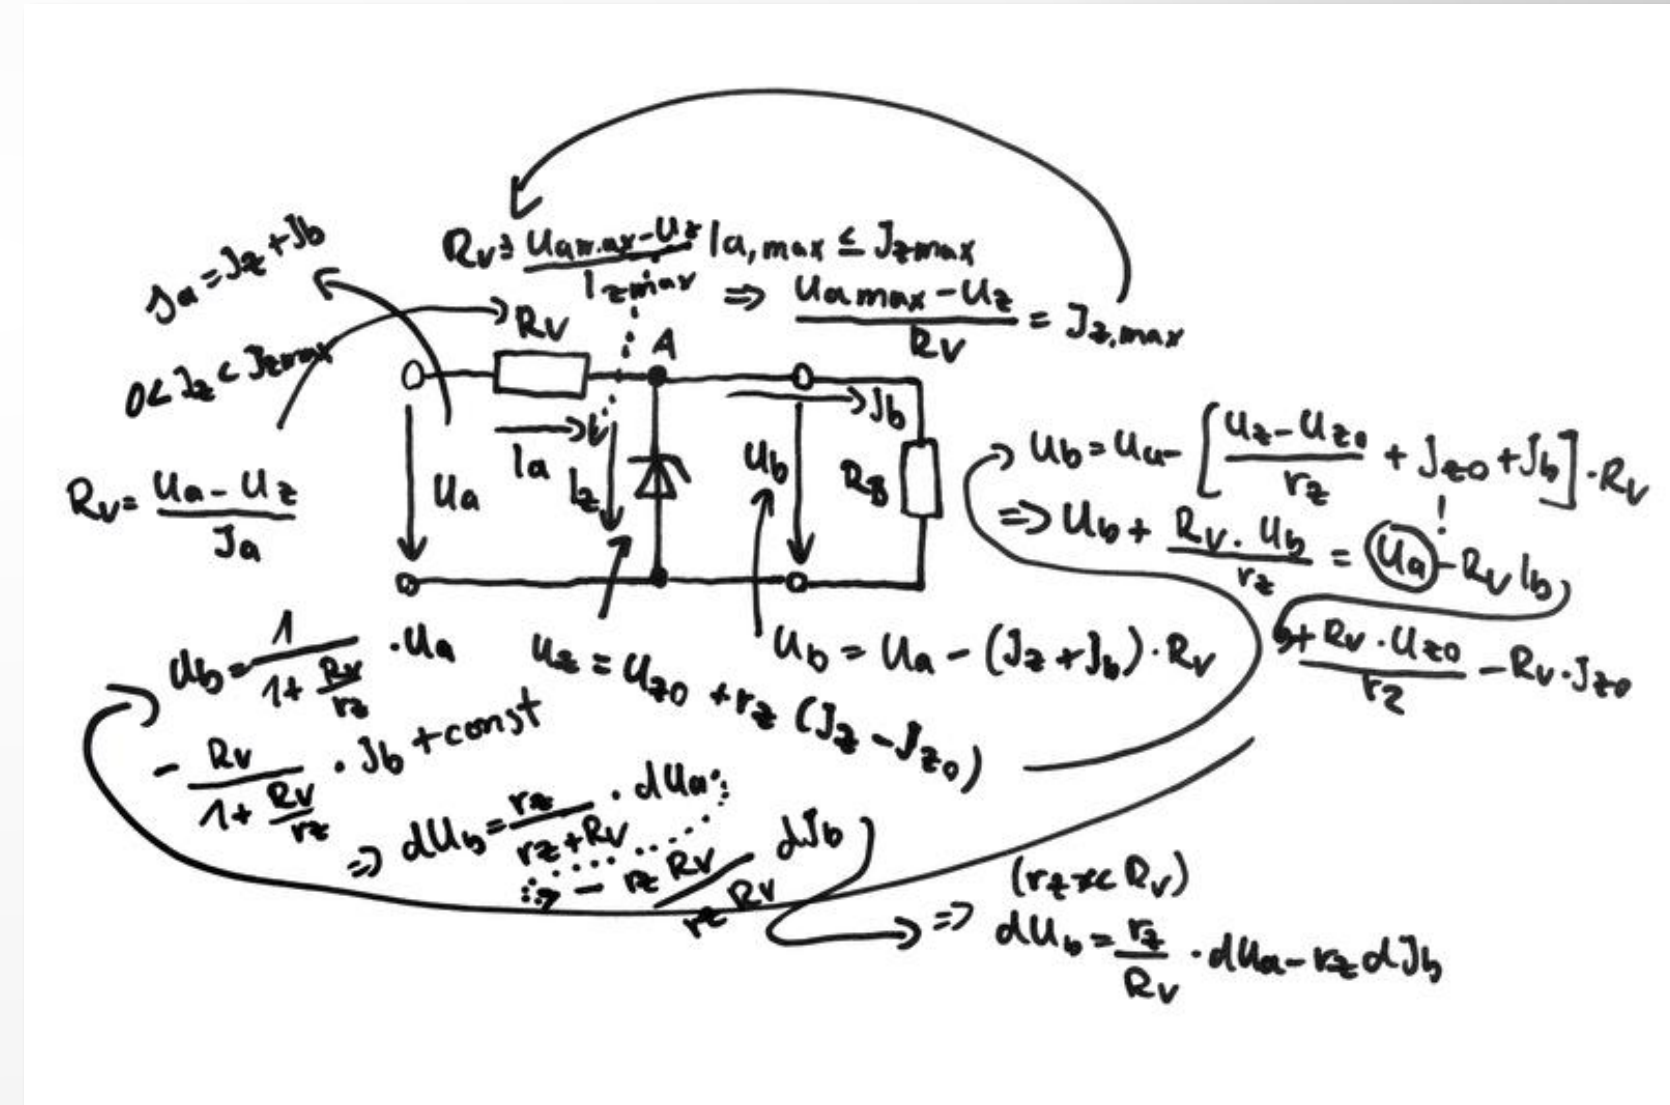 Rv ≥ (Ua max - Uz) / Iz max
Ia, max ≤ Jz max
⇒ (Ua max - Uz) / Rv = Jz, max
Ja = Jz + Jb
0 < Jz < Jz max
Rv = (Ua - Uz) / Ja
Rv
A
Ia
Ua
Iz
Ub
Jb
RB
Ub = Ua - [(Uz - Uz0) / rz + Jz0 + Jb] · Rv
!
⇒ Ub + (Rv · Ub) / rz = Ua - Rv Ib
+ (Rv · Uz0) / rz - Rv · Jz0
Ub = Ua - (Jz + Jb) · Rv
Uz = Uz0 + rz (Jz - Jz0)
Ub = 1 / (1 + Rv / rz) · Ua
- Rv / (1 + Rv / rz) · Jb + const
⇒ dUb = rz / (rz + Rv) · dUa
- rz Rv / rz Rv dJb
(rz << Rv)
⇒ dUb = rz / Rv · dUa - rz dJb